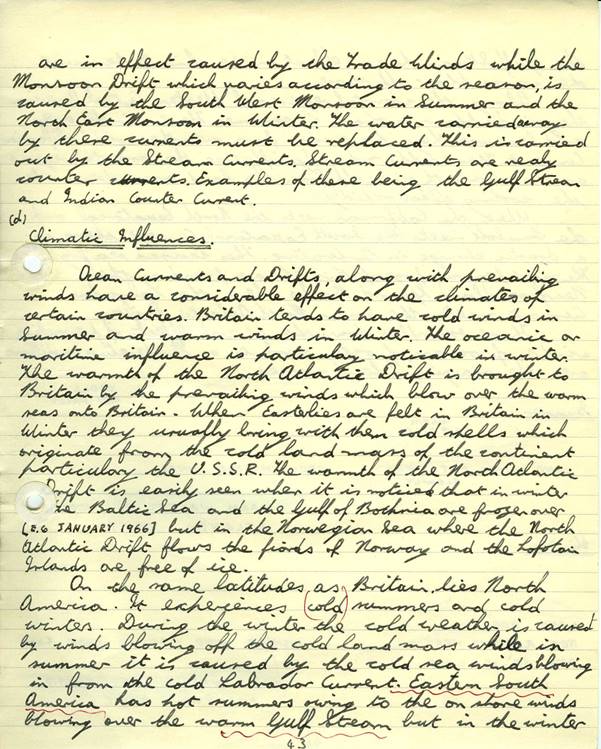 are in effect caused by the Trade Winds while the
Monsoon Drift which varies according to the season, is
caused by the South West Monsoon in Summer and the
North East Monsoon in Winter. The water carried away
by these currents must be replaced. This is carried
out by the Stream Currents. Stream Currents, are realy
counter currents. Examples of these being the Gulf Stream
and Indian Counter Current.
(d)
Climatic Influences.
Ocean Currents and Drifts, along with prevailing
winds have a considerable effect on the climates of
certain countries. Britain tends to have cold winds in
Summer and warm winds in Winter. The oceanic or
maritime influence is particulay noticable in winter.
The warmth of the North Atlantic Drift is brought to
Britain by the prevailing winds which blow over the warm
seas onto Britain. When Eastelies are felt in Britain in
Winter they usually bring with them cold shells which
originate from the cold land mass of the continent
particulary the U.S.S.R. The warmth of the North Atlantic
Drift is easily seen when it is noticed that in winter
Baltic Sea and the Gulf of Bothnia are frozen over
[E.G JANUARY 1966] but in the Norwegian Sea where the North
Atlantic Drift flows the fiords of Norway and the Lofotan
Islands are free of ice.
On the same latitudes as Britain, lies North
America. It experiences (cold) summers and cold
winters. During the winter the cold weather is caused
by winds blowing off the cold land mass while in
summer it is caused by the cold sea winds blowing
in from the cold Labrador Current. Eastern South
America has hot summers owing to the on shore winds
blowing over the warm Gulf Stream but in the winter
43